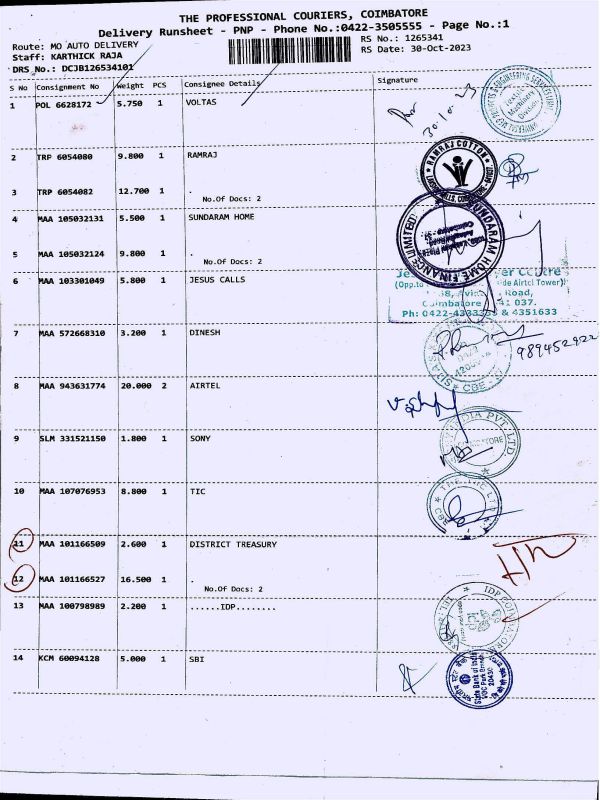 THE PROFESSIONAL COURIERS, COIMBATORE
Delivery Runsheet - PNP - Phone No.:0422-3505555 - Page No.:1
Route: MO AUTO DELIVERY
RS No.: 1265341
Staff: KARTHICK RAJA
RS Date: 30-Oct-2023
DRS No.: DCJB126534101
S No Consignment No Weight PCS Consignee Details Signature
1 POL 6628172 5.750 1 VOLTAS
30.10.
2 TRP 6054080 9.800 1 RAMRAJ
RAMRAJ COTTON
3 TRP 6054082 12.700 1 .
No.Of Docs: 2
4 MAA 105032131 5.500 1 SUNDARAM HOME
SUNDARAM HOME FINANCE LIMITED
5 MAA 105032124 9.800 1 .
No.Of Docs: 2
6 MAA 103301049 5.800 1 JESUS CALLS
Road,
Ph: 0422-4333 & 4351633
7 MAA 572668310 3.200 1 DINESH
8 MAA 943631774 20.000 2 AIRTEL
9 SLM 331521150 1.800 1 SONY
INDIA PVT. LTD.
10 MAA 107076953 8.800 1 TIC
11 MAA 101166509 2.600 1 DISTRICT TREASURY
12 MAA 101166527 16.500 1 .
No.Of Docs: 2
13 MAA 100798989 2.200 1 ......IDP........
IDP COIMBATORE
14 KCM 60094128 5.000 1 SBI
State Bank of India